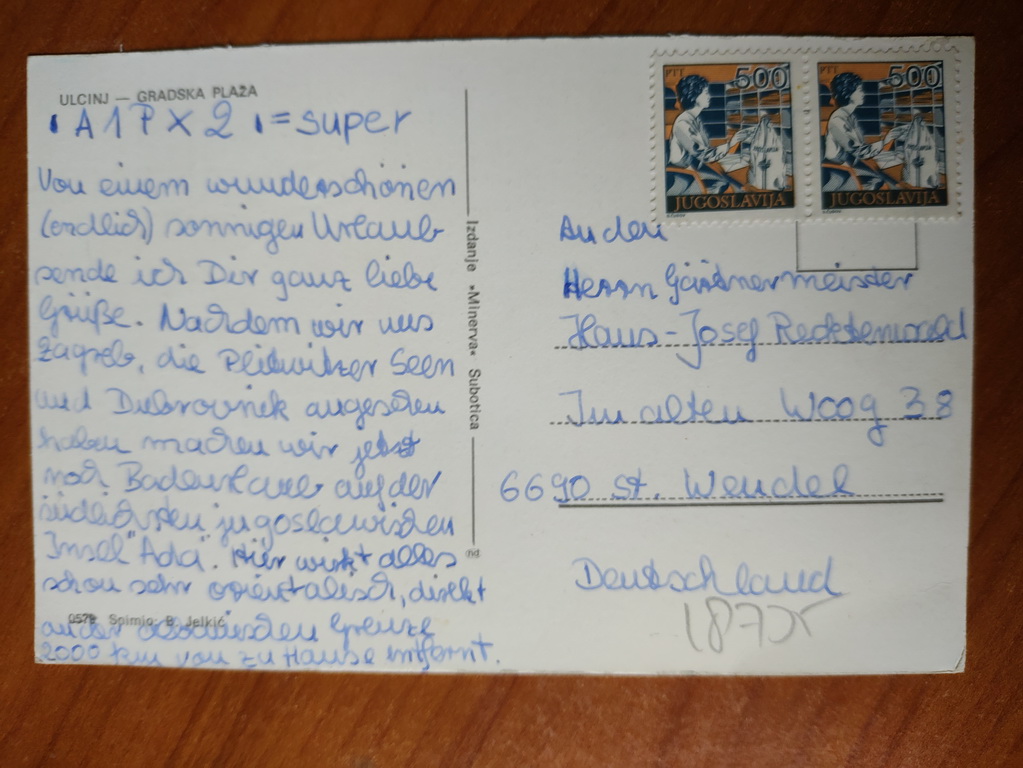 ULCINJ — GRADSKA PLAŽA
"A 1 P X 2" = super
Von einem wunderschönen
(endlich) sonnigen Urlaub
sende ich Dir ganz liebe
Grüße. Nachdem wir uns
Zagreb, die Plitwitzer Seen
und Dubrovnik angesehen
haben machen wir jetzt
noch Badeurlaub auf der
südlichsten jugoslawischen
Insel "Ada". Hier wirkt alles
schon sehr orientalisch, direkt
an der albanischen Grenze
2000 km von zu Hause entfernt.
0579 Snimio: B. Jelkić
Izdanje »Minerva« Subotica
PTT 500
JUGOSLAVIJA
PTT 500
JUGOSLAVIJA
An den
Herrn Gärtnermeister
Hans-Josef
Im alten Woog 38
6690 St. Wendel
Deutschland